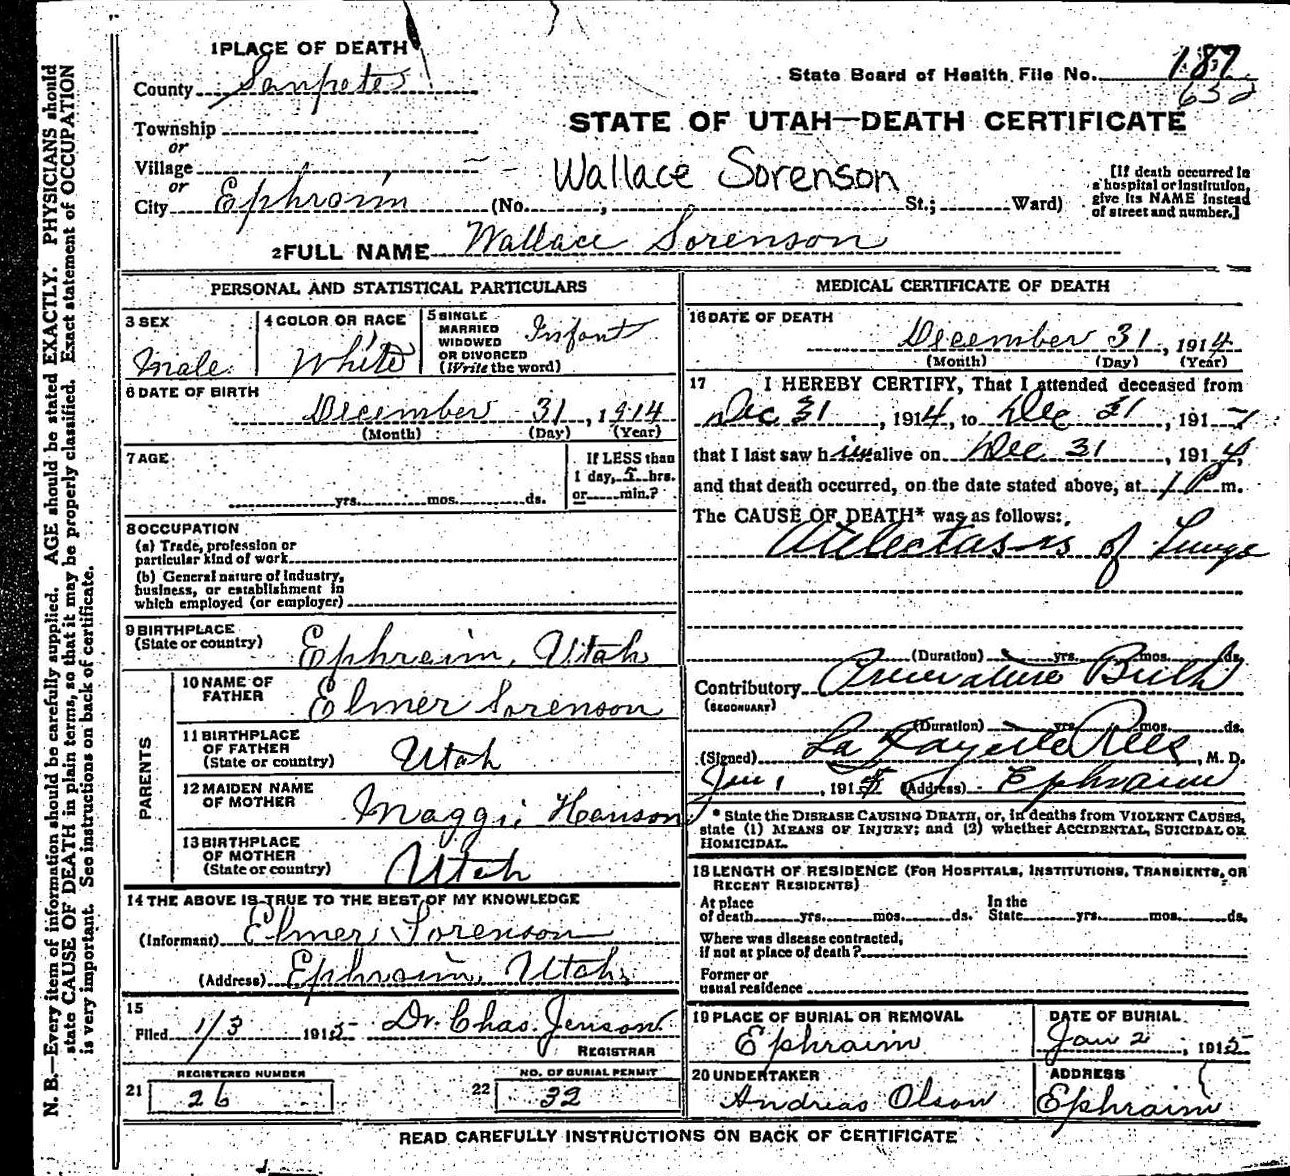 N. B.—Every item of information should be carefully supplied. AGE should be stated EXACTLY. PHYSICIANS should
state CAUSE OF DEATH in plain terms, so that it may be properly classified. Exact statement of OCCUPATION
is very important. See instructions on back of certificate.
1 PLACE OF DEATH
County Sanpete
State Board of Health File No. 187
632
Township
or
STATE OF UTAH—DEATH CERTIFICATE
Village
or
Wallace Sorenson
City Ephraim (No. , St.; Ward)
[If death occurred in
a hospital or institution,
give its NAME instead
of street and number.]
2 FULL NAME Wallace Sorenson
PERSONAL AND STATISTICAL PARTICULARS
3 SEX
Male
4 COLOR OR RACE
White
5 SINGLE
MARRIED
WIDOWED
OR DIVORCED
(Write the word)
Infant
6 DATE OF BIRTH
December 31, 1914
(Month) (Day) (Year)
7 AGE
yrs. mos. ds.
If LESS than
1 day, 5 hrs.
or min.?
8 OCCUPATION
(a) Trade, profession or
particular kind of work
(b) General nature of industry,
business, or establishment in
which employed (or employer)
9 BIRTHPLACE
(State or country) Ephraim, Utah
PARENTS
10 NAME OF
FATHER Elmer Sorenson
11 BIRTHPLACE
OF FATHER
(State or country) Utah
12 MAIDEN NAME
OF MOTHER Maggie Hanson
13 BIRTHPLACE
OF MOTHER
(State or country) Utah
14 THE ABOVE IS TRUE TO THE BEST OF MY KNOWLEDGE
(Informant) Elmer Sorenson
(Address) Ephraim, Utah,
15
Filed 1/3 1915 Dr. Chas. Jenson
REGISTRAR
21 REGISTERED NUMBER
26
22 NO. OF BURIAL PERMIT
32
MEDICAL CERTIFICATE OF DEATH
16 DATE OF DEATH
December 31, 1914
(Month) (Day) (Year)
17 I HEREBY CERTIFY, That I attended deceased from
Dec 31, 1914, to Dec 31, 191
that I last saw him alive on Dec 31, 1914,
and that death occurred, on the date stated above, at 1 P m.
The CAUSE OF DEATH* was as follows:
Atelectasis of Lungs
(Duration) yrs. mos. ds.
Contributory Premature Birth
(SECONDARY)
(Duration) yrs. mos. ds.
(Signed) La Fayette Rees, M. D.
Jan 1, 1915 (Address) Ephraim
* State the DISEASE CAUSING DEATH, or, in deaths from VIOLENT CAUSES,
state (1) MEANS OF INJURY; and (2) whether ACCIDENTAL, SUICIDAL OR
HOMICIDAL.
18 LENGTH OF RESIDENCE (FOR HOSPITALS, INSTITUTIONS, TRANSIENTS, OR
RECENT RESIDENTS)
At place
of death yrs. mos. ds.
In the
State yrs. mos. ds.
Where was disease contracted,
if not at place of death?
Former or
usual residence
19 PLACE OF BURIAL OR REMOVAL
Ephraim
DATE OF BURIAL
Jan 2, 1915
20 UNDERTAKER
Andreas Olson
ADDRESS
Ephraim
READ CAREFULLY INSTRUCTIONS ON BACK OF CERTIFICATE